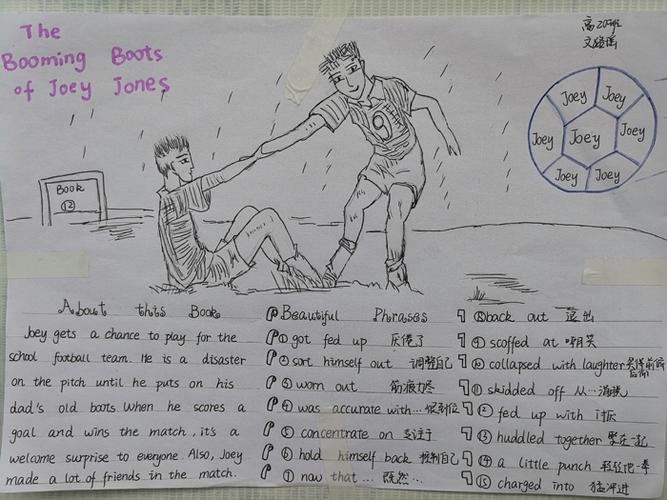 The
Booming Boots
of Joey Jones
高20班
Joey Joey
Joey Joey Joey
Joey Joey
Book
⑫
9
About this Book
Joey gets a chance to play for the
school football team. He is a disaster
on the pitch until he puts on his
dad's old boots when he scores a
goal and wins the match, it's a
welcome surprise to everyone. Also, Joey
made a lot of friends in the match.
Beautiful Phrases
① got fed up 厌倦了
② sort himself out 调整自己
③ worn out 筋疲力尽
④ was accurate with... 做到位
⑤ concentrate on 专注于
⑥ hold himself back 控制自己
⑦ now that ... 既然...
⑧ back out 退出
⑨ scoffed at 嘲笑
⑩ collapsed with laughter 笑得前俯后仰
⑪ skidded off 从...滑脱
⑫ fed up with 讨厌
⑬ huddled together 聚在一起
⑭ a little punch 轻轻地一拳
⑮ charged into 猛冲进